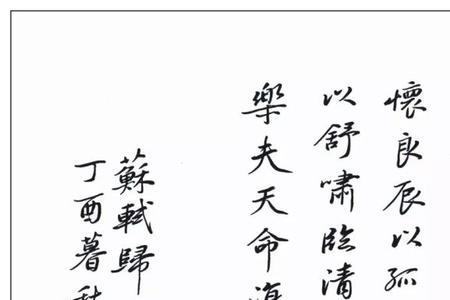 懷良辰以孤
以舒嘯臨清
樂夫天命
蘇軾歸
丁酉暮